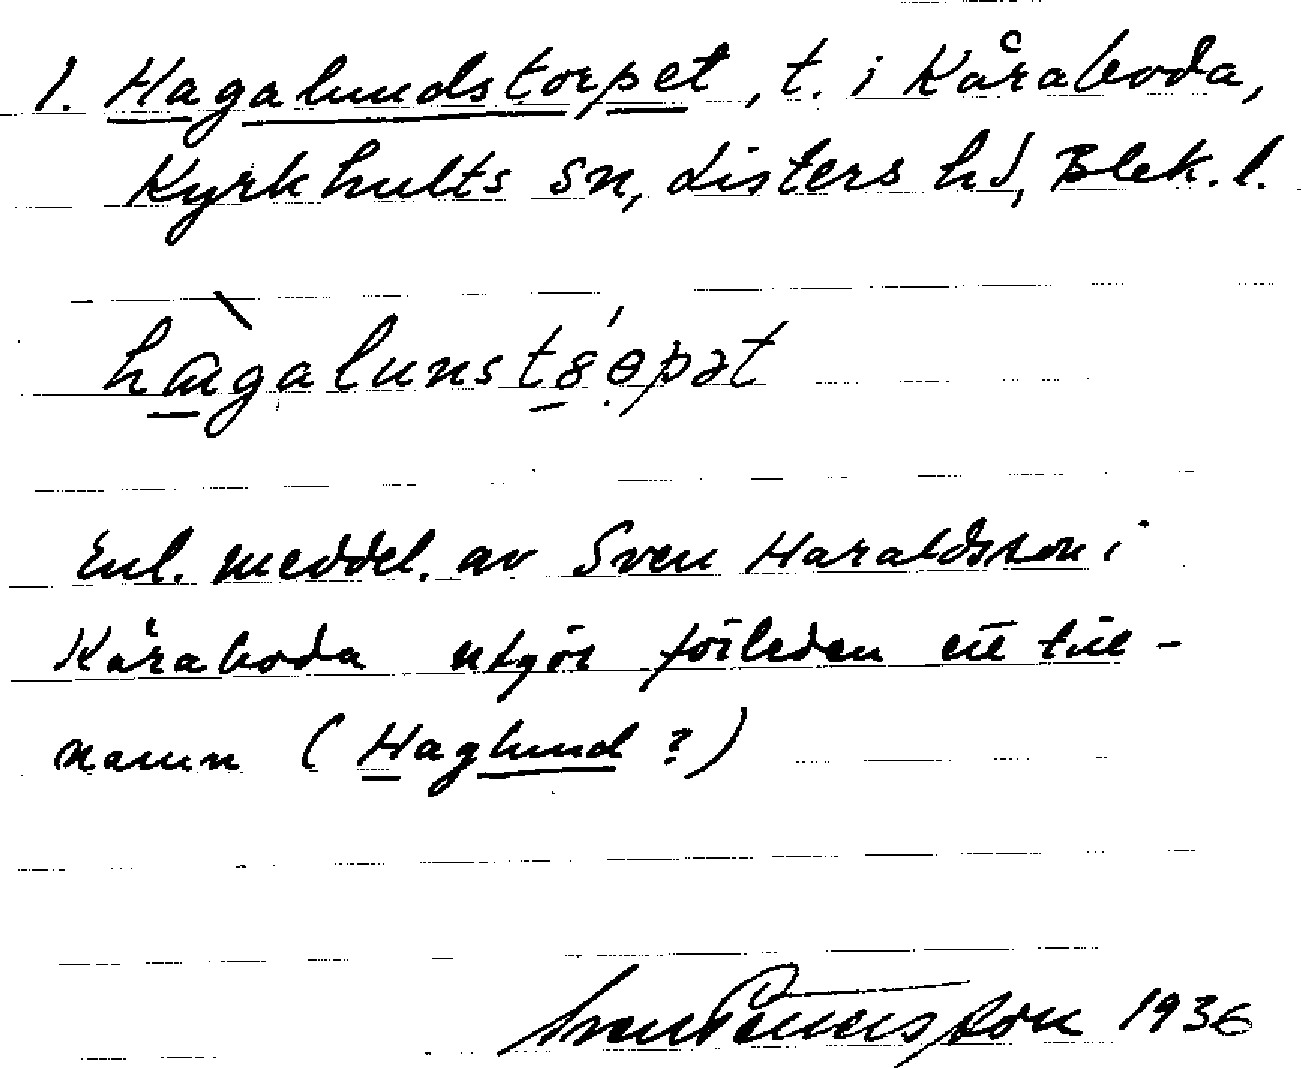 1. Hagalundstorpet, t. i Kåraboda,
Kyrkhults sn, Listers hd, Blek. l.
Enl. meddel. av Sven Haraldsson i
Kåraboda utgör förleden ett till-
namn (Haglund?)
Sven 1936